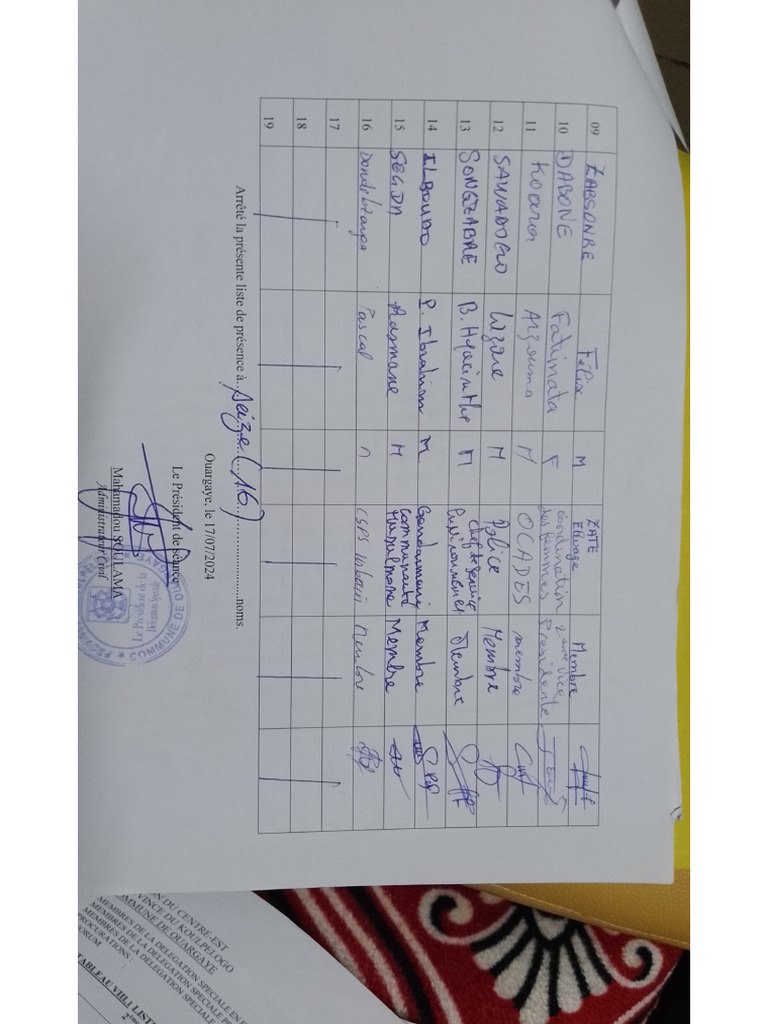 09 ZABSONRE Félix M ZATE Elevage Membre
10 DABONE Fatimata F coordination des femmes 2ème vice Présidente
11 Koara M OCADES membre
12 SAWADOGO M Police Membre
13 SONGZABRE B. Hyacinthe M Chef de service Environnement Membre
14 ILBOUDO P. Ibrahim M Gendarmerie Membre
15 SEGDA Rasmane M Communauté Musulmane Membre
16 Pascal M CSPS Urbain Membre
17
18
19
Arrêté la présente liste de présence à Seize (16) noms.
Ouargaye, le 17/07/2024
Le Président de séance
Mahamadou SOULAMA
Administrateur Civil
COMMUNE DE OUARGAYE
Le Président de la
ON DU CENTRE-EST
VINCE DU KOULPELOGO
OMMUNE DE OUARGAYE
MEMBRES DE LA DELEGATION SPECIALE EN
MEMBRES DE LA DELEGATION SPECIALE P
MEMBRES DE LA DELEGATION SPECIALE
PROCURATIONS :
ORUM
TABLEAU VIII LIST